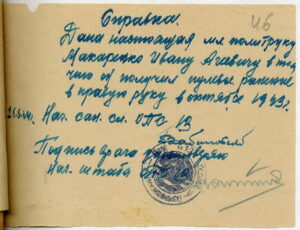 46
Справка.
Дана настоящая мл. политруку
Макаренко Ивану Агеевичу в том,
что он получил пулевое ранение
в правую руку в октябре 1943 г.
Нач. сан. сл. ОПС 13
Подпись врача удостоверяю
Нач. штаба